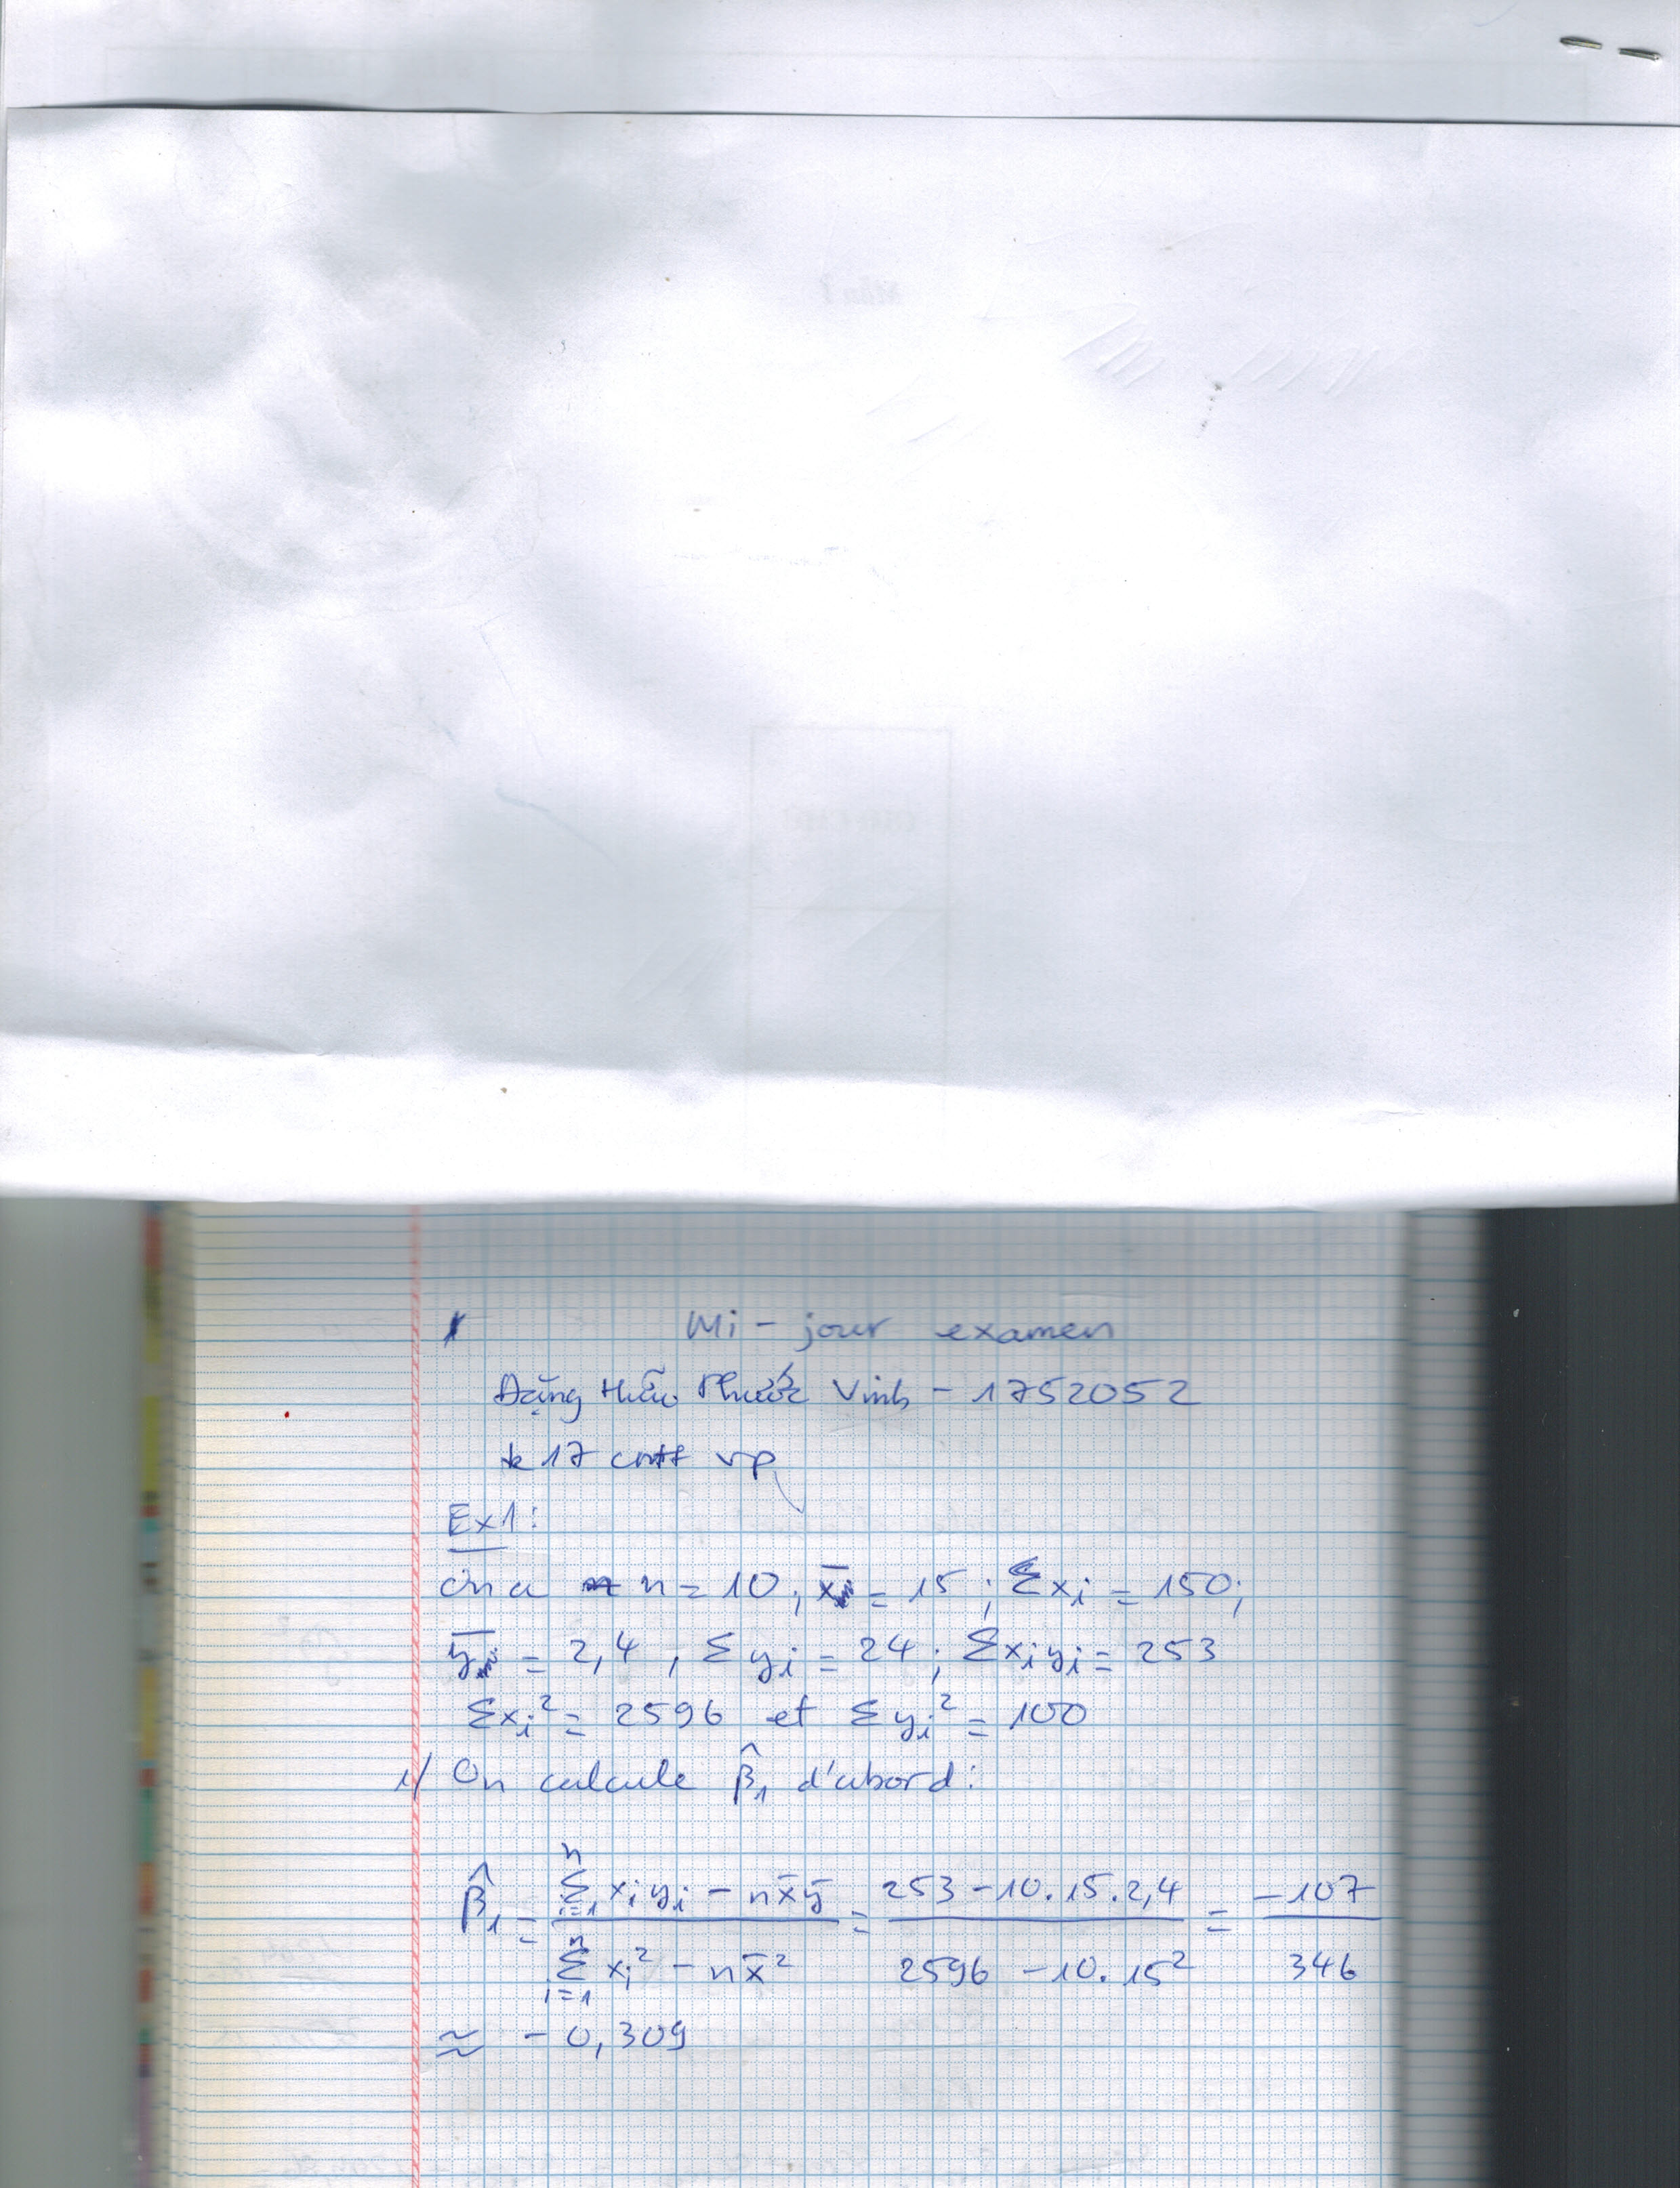 Mi - jour examen
Đặng Hữu Phước Vinh - 1752052
k17 cntt vp
Ex1:
On a n = 10 ; x̄ = 15 ; Σxᵢ = 150;
ȳ = 2,4 , Σyᵢ = 24 ; Σxᵢyᵢ = 253
Σxᵢ² = 2596 et Σyᵢ² = 100
1/ On calcule β̂₁ d'abord:
β̂₁ = (Σⁿᵢ₌₁ xᵢyᵢ - nx̄ȳ) / (Σⁿᵢ₌₁ xᵢ² - nx̄²) = (253 - 10.15.2,4) / (2596 - 10.15²) = -107 / 346
≈ - 0,309